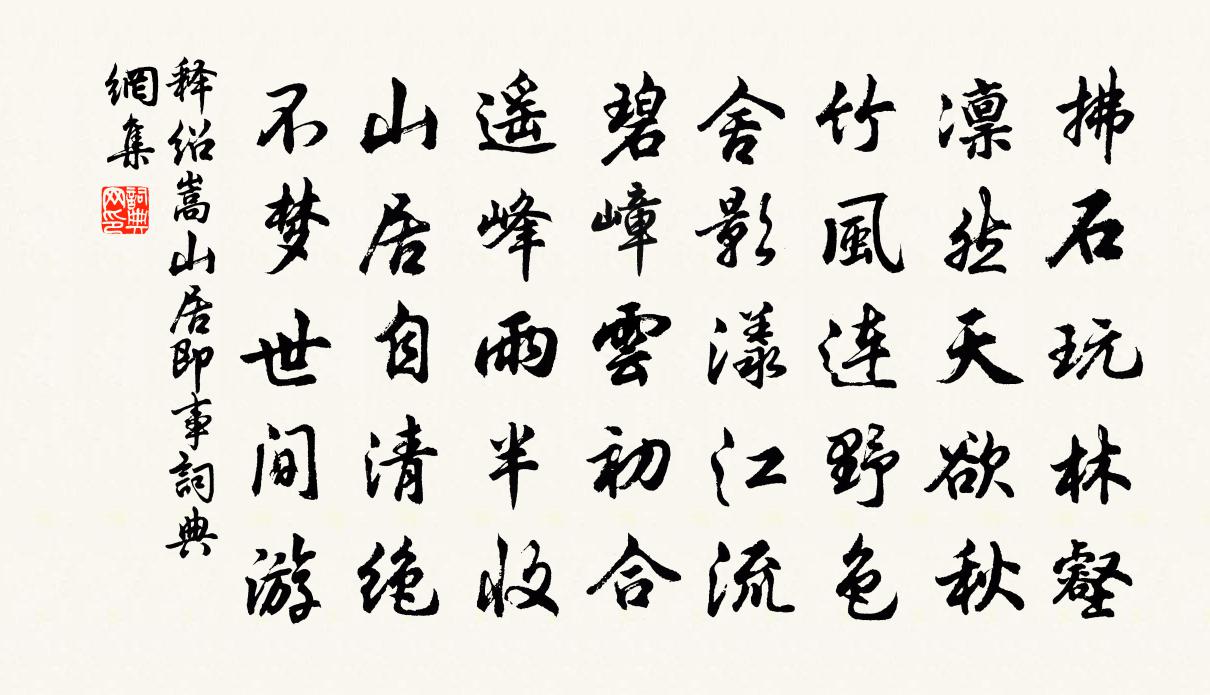 拂石玩林壑
凛然天欲秋
竹風连野色
舍影漾江流
碧嶂雲初合
遥峰雨半收
山居自清绝
不梦世间游
释绍嵩山居即事詞典
網集
詞典
网印